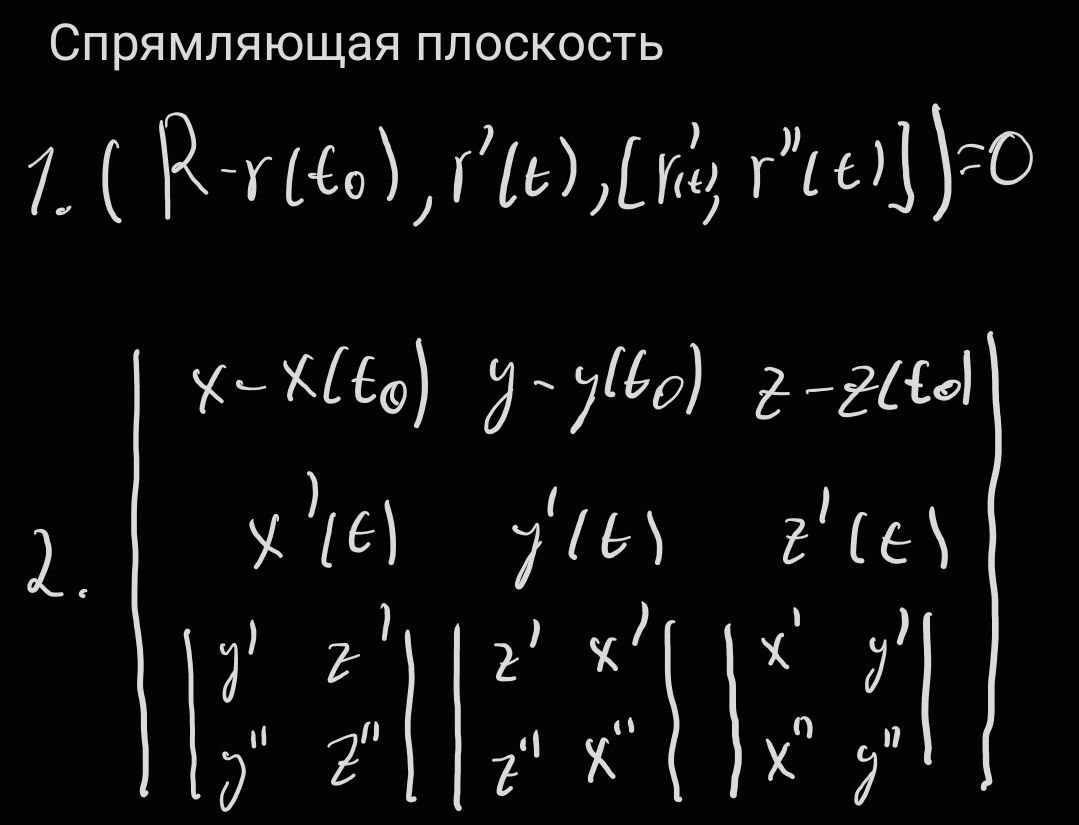 Спрямляющая плоскость
1. (R-r(t₀), r'(t), [r'(t), r''(t)])=0
x-x(t₀) y-y(t₀) z-z(t₀)
2. | x'(t) y'(t) z'(t) |
|y' z'| |z' x'| |x' y'|
|y'' z''| |z'' x''| |x'' y''|